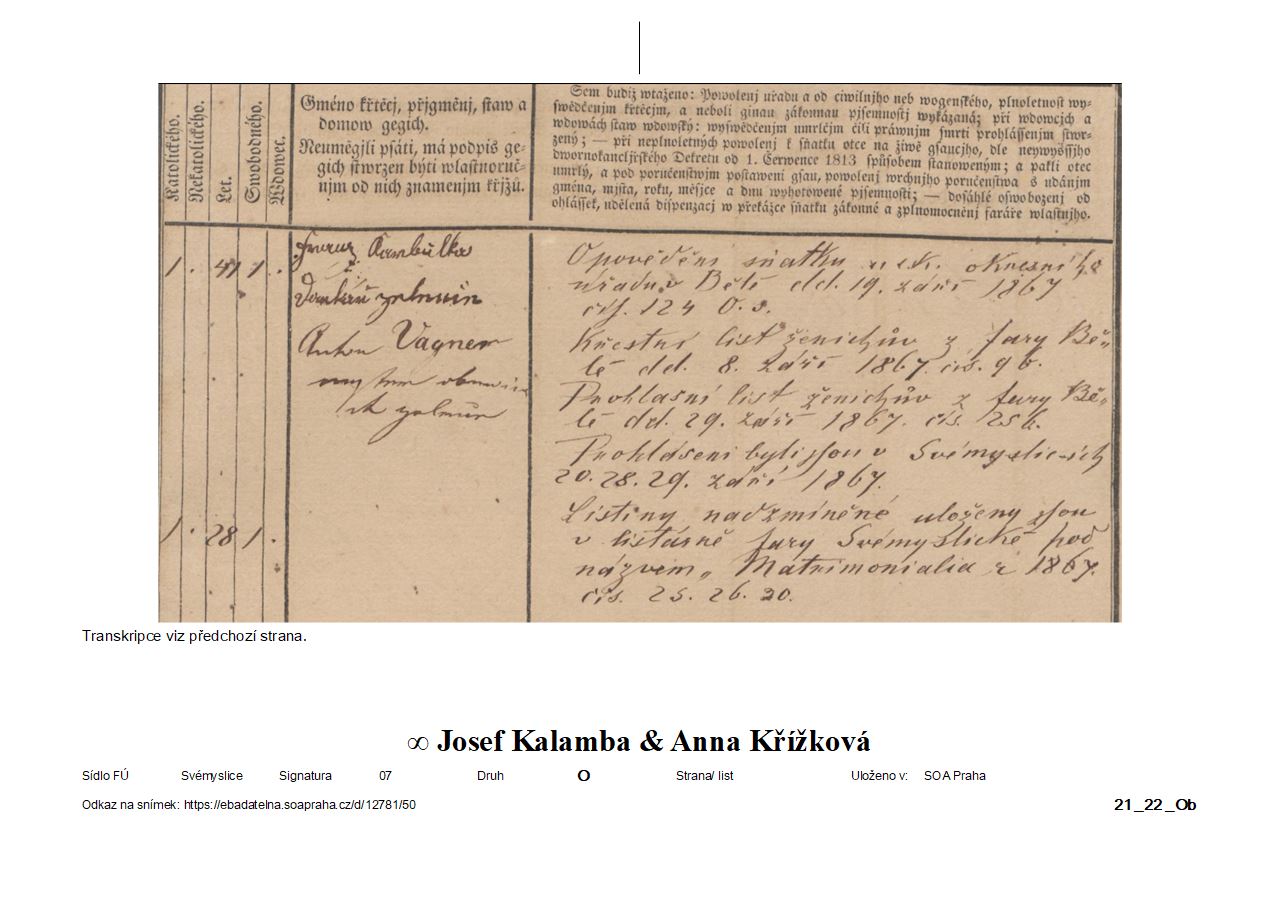 Katolického.
Nekatolického.
Let.
Swobodného.
Wdowec.
Gméno křtěcj, přjgměnj, staw a
domow gegich.
Neuměgjli psáti, má podpis ge-
gich stwrzen býti wlastnoruč-
njm od nich znamenjm křjžů.
Sem budiž wtaženo: Powolenj uřadu a od ciwilnjho neb wogenského, plnoletnost wy-
swědčenjm křtěcjm, a neboli ginau zákonnau pjsemnostj wykázaná; při wdowcjch a
wdowách staw wdowský: wyswědčenjm umrlčjm čili práwnjm smrti prohlássenjm stwr-
zený; — při neplnoletných powolenj k sňatku otce na žiwě gsaucjho, dle neywyššjho
dwornokancljřského Dekretu od 1. Čerwence 1813 spůsobem stanoweným; a pakli otec
umrlý, a pod poručenstwjm postawenj gsau, powolenj wrchnjho poručenstwa s udánjm
gména, mjsta, roku, měsjce a dnu wyhotowené pjsemnosti; — dosáhlé oswobozenj od
ohlássek, udělená dispenzacj w překážce sňatku zákonné a zplnomocněnj faráře wlastnjho.
1 . 41 1 .
Franz
Anton Vágner
Opovědění sňatku u c.k. okresního
úřadu v Bělé dd. 19. září 1867
čís. 124 O.s.
Křestní list ženichův z fary Bě„
lé dd. 8. září 1867. čís. 96.
Prohlasní list ženichův z fary Bě„
lé dd. 29. září 1867. čís. 256.
Prohlášeni byli jsou v Svémyslicích
20. 28. 29. září 1867.
1 . 28 1 .
Listiny nadzmíněné uloženy jsou
v listárně fary Svémyslické pod
názvem „ Matrimonialia z 1867.
čís. 25. 26. 20.
Transkripce viz předchozí strana.
∞ Josef Kalamba & Anna Křížková
Sídlo FÚ Svémyslice Signatura 07 Druh O Strana/ list Uloženo v: SOA Praha
Odkaz na snímek: https://ebadatelna.soapraha.cz/d/12781/50 21_22_Ob